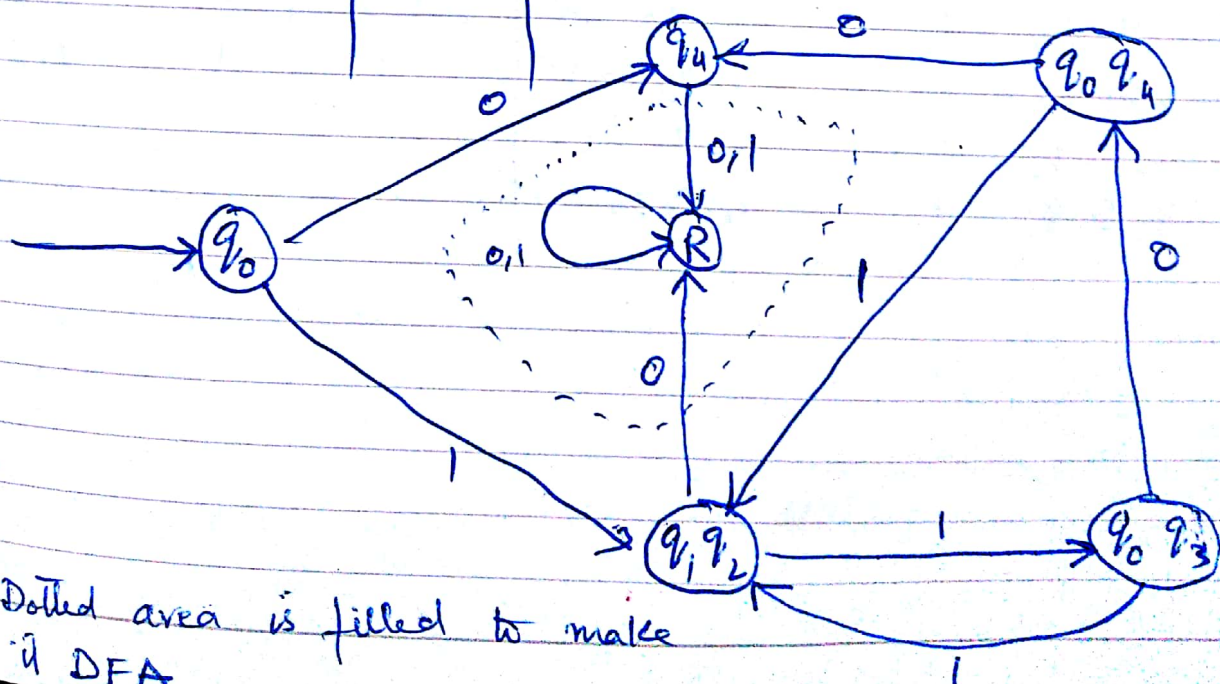 0
q4
q0 q4
0
0,1
q0
0,1
R
1
0
0
1
q1 q2
1
q0 q3
1
Dotted area is filled to make
it DFA